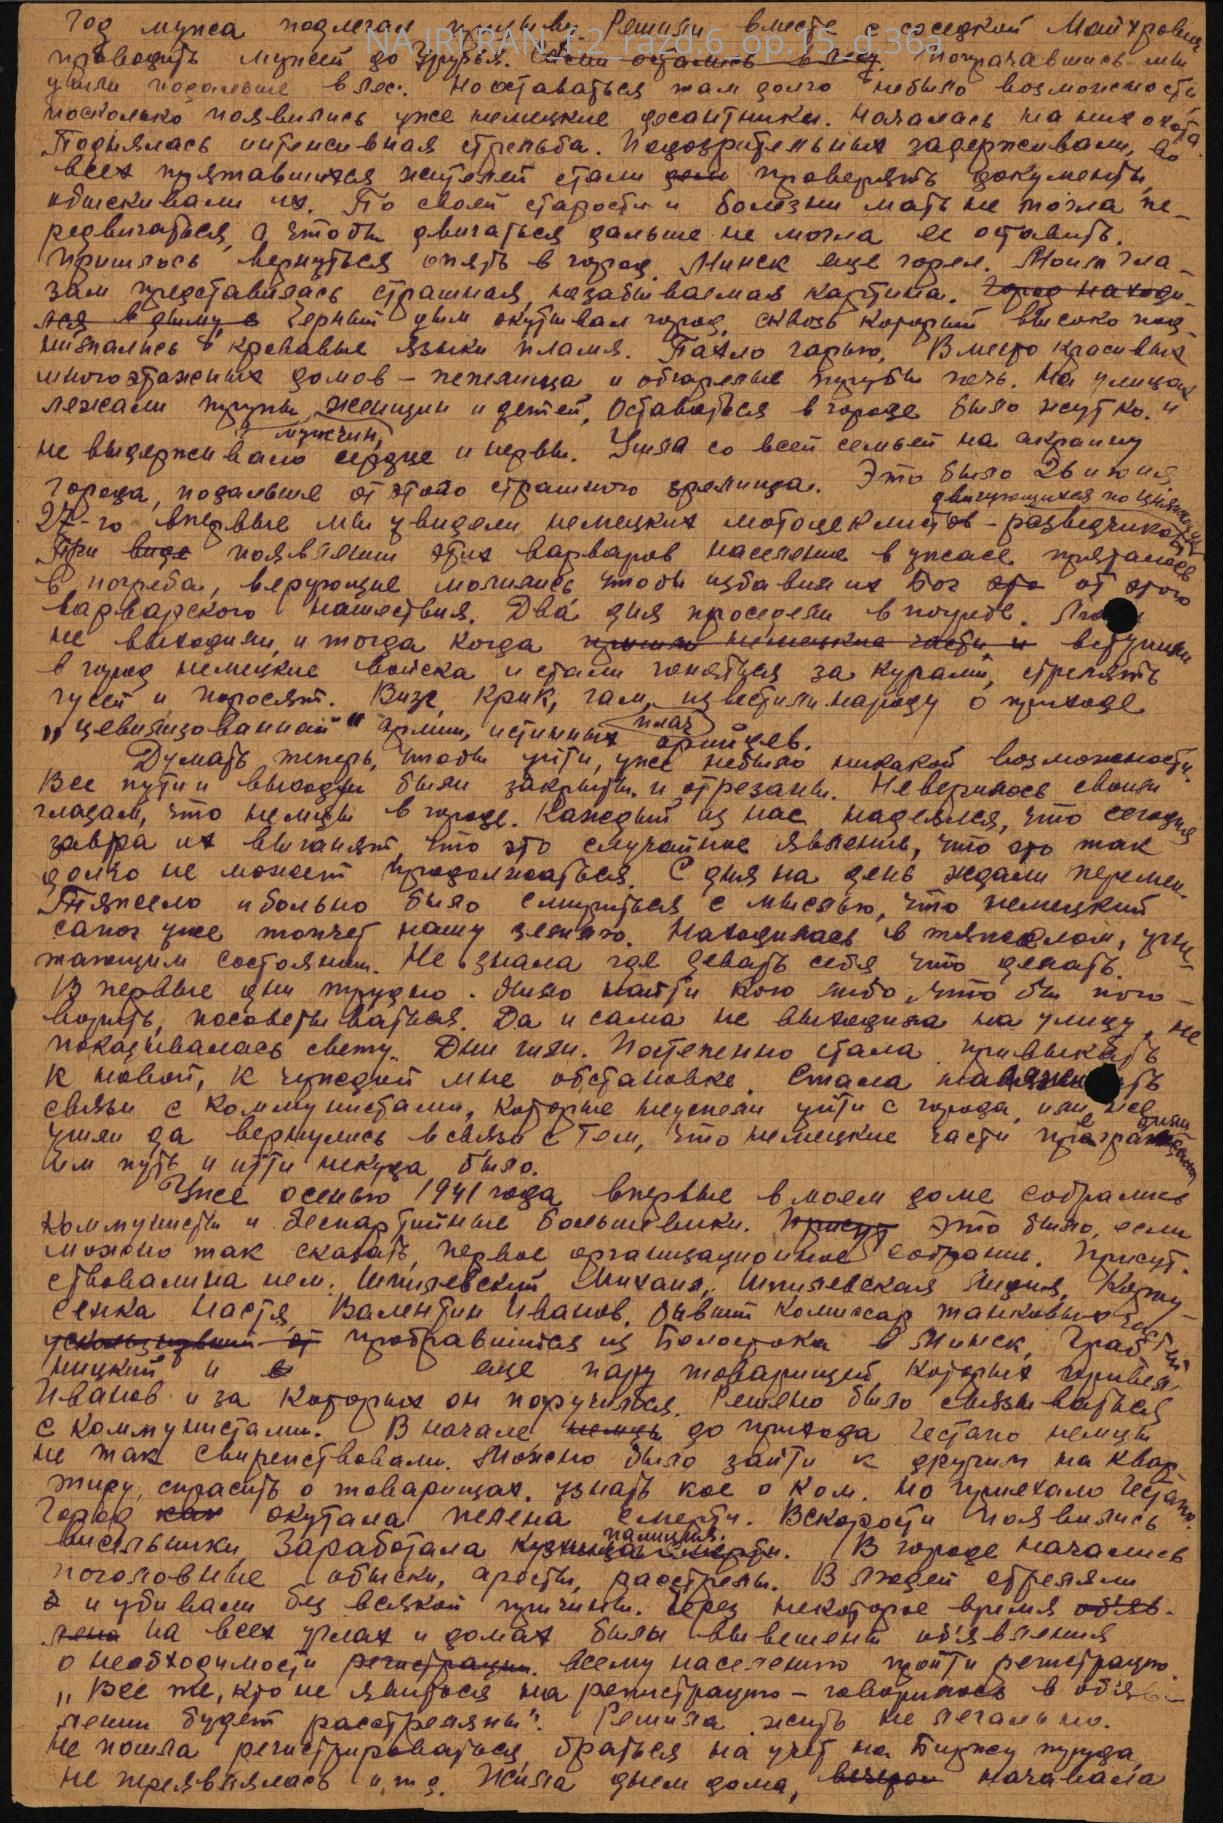 NAJRI RAN_1.2_razd.6_op.15_d.36a
Год мужа подлежал призыву. Решили вместе с соседкой
проводить мужей до Уручья. Попрощавшись мы
ушли подальше в лес. Но оставаться там долго небыло возможности,
поскольку появились уже немецкие десантники. Началась на них охота.
Поднялась интенсивная стрельба. Подозрительных задерживали, во
всех прятавшихся жителей стали проверять документы,
обыскивали их. По своей старости и болезни мать не могла пе-
редвигаться, а чтобы двигаться дальше не могла ее оставить.
Пришлось вернуться опять в город. Минск еще горел. Моим гла-
зам представилась страшная, незабываемая картина. Город находи-
лся в дыму, в Черный дым окутывал город, сквозь который высоко под-
нимались кровавые языки пламя. Пахло гарью, Вместо красивых
многоэтажных домов – пепелища и обгорелые трубы печь. На улицах
лежали трупы женщин и детей, Оставаться в городе было жутко. и
мужчин,
не выдерживало сердце и нервы. Ушла со всей семьей на акраину
города, подальше от этого страшного зрелища. Это было 26 июня.
двигающихся по
27-го впервые мы увидели немецких мотоциклистов – разведчиков
При виде появлении этих варваров население в ужасе пряталось
в погреба, верующие молились чтобы избавил их Бог это от этого
варварского нашествия. Два дня проседели в погребе.
не выходили, и тогда когда пришли немецкие части и вступили
в город немецкие войска и стали гоняться за курами, стрелять
гусей и поросят. Визг, крик, гам, известили народу о приходе
плач
„цевилизованной" армии, истинных арийцев.
Думать теперь, чтобы уйти, уже небыло никакой возможности.
Все пути и выходы были закрыты и отрезаны. Неверилось своим
глазам, что немцы в городе. Каждый из нас надеялся, что сегодня
завтра их выгонят, что это случайное явление, что это так
долго не может продолжаться. С дня на день ждали перемен.
Тяжело и больно было смириться с мыслью, что немецкий
сапог уже топчет нашу землю. Находилась в тяжелом, угне-
тающим состоянии. Не знала где девать себя, что делать.
В первые дни трудно было найти кого либо, что бы пого-
ворить, посоветываться. Да и сама не выходила на улицу, не
показывалась свету. Дни шли. Постепенно стала привыкать
к новой, к чуждой мне обстановке. Стала
связи с коммунистами, которые неуспели уйти с города, или же
ушли да вернулись в связи с тем, что немецкие части
им путь и итти некуда было.
Уже осенью 1941 года впервые в моем доме собрались
коммунисты и беспартийные большевики. Присут Это было, если
можно так сказать, первое организационное собрание. Присут-
ствовали на нем: Шпилевский Михаил, Шпилевская Лидия,
Настя, Валентин Иванов, бывший комиссар танковых частей
пробравшийся из Белостока в Минск,
и еще пару товарищей, которых привел
Иванов и за которых он поручился. Решено было связываться
с коммунистами. В начале немцы до прихода Гестапо немцы
не так свирепствовали. Можно было зайти к другим на квар-
тиру, спросить о товарищах, узнать кое о ком. Но приехало Гестапо.
Город как окутала пелена смерти. Вскорости появились
палачия.
висельники. Заработала кузница смерти. В городе начались
поголовные обыски, аресты, расстрелы. В людей стреляли
и убивали без всякой причины. Через некоторое время объяв-
лено на всех углах и домах были вывешены об'явления
о необходимости регистрации всему населению пройти регистрацию.
„Все же, кто не явиться на регистрацию – говорилось в об'яв-
лении будет расстреляны". Решила жить не легально.
Не пошла регистрироваться, браться на учет на Биржу труда,
не т.д. Жила днем дома, вечером начавала